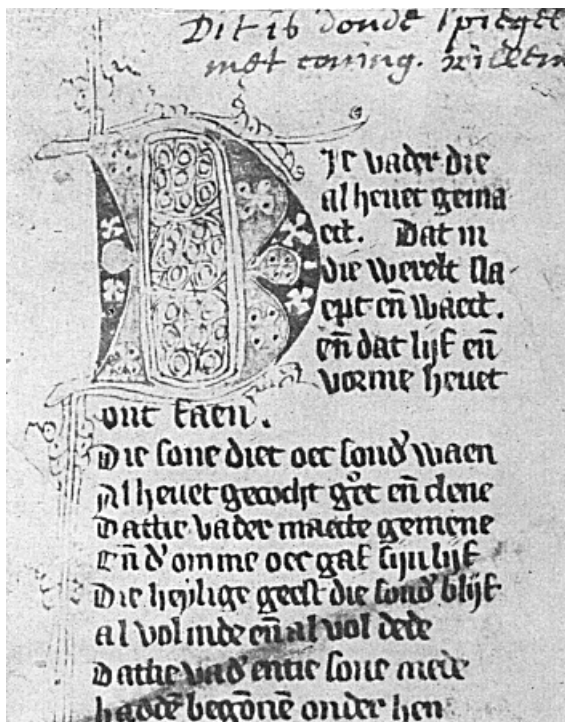 Dit is d'oude spiegel
met coning. willem
Die vader die
al heuet gema
ect. Dat in
die werelt sla
ept eñ waect.
eñ dat lijf eñ
vorme heuet
ont faen.
Die sone diet oec sond' waen
Al heuet gecocht g'et eñ clene
Dattie vader maecte gemene
Eñ d' omme oec gaf sijn lijf
Die heylige geest die sond' blijf
al vol inde eñ al vol dede
Dattie vad' entie sone mede
hadde begōnē onder hen